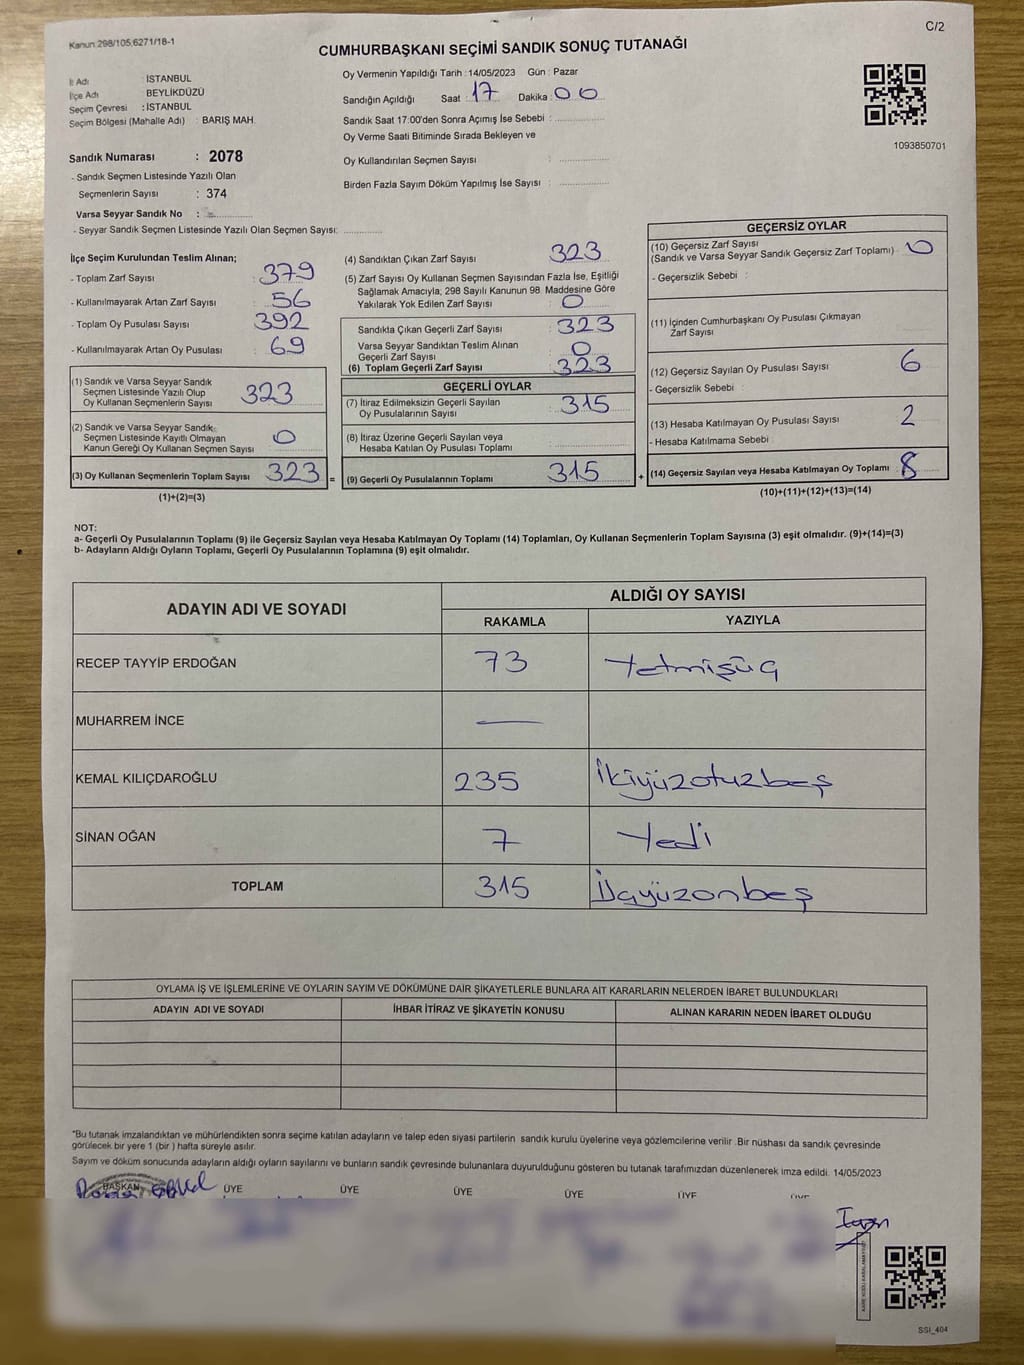 Kanun:298/105;6271/18-1
C/2
CUMHURBAŞKANI SEÇİMİ SANDIK SONUÇ TUTANAĞI
İl Adı : İSTANBUL
İlçe Adı BEYLİKDÜZÜ
Seçim Çevresi : İSTANBUL
Seçim Bölgesi (Mahalle Adı) : BARIŞ MAH.
Oy Vermenin Yapıldığı Tarih : 14/05/2023 Gün : Pazar
Sandığın Açıldığı Saat : 17 Dakika : 00
Sandık Saat 17:00'den Sonra Açımış İse Sebebi :
Oy Verme Saati Bitiminde Sırada Bekleyen ve
Oy Kullandırılan Seçmen Sayısı :
Birden Fazla Sayım Döküm Yapılmış İse Sayısı :
1093850701
Sandık Numarası : 2078
- Sandık Seçmen Listesinde Yazılı Olan
Seçmenlerin Sayısı : 374
Varsa Seyyar Sandık No :
- Seyyar Sandık Seçmen Listesinde Yazılı Olan Seçmen Sayısı:
İlçe Seçim Kurulundan Teslim Alınan;
- Toplam Zarf Sayısı : 379
- Kullanılmayarak Artan Zarf Sayısı : 56
- Toplam Oy Pusulası Sayısı : 392
- Kullanılmayarak Artan Oy Pusulası : 69
(1) Sandık ve Varsa Seyyar Sandık
Seçmen Listesinde Yazılı Olup
Oy Kullanan Seçmenlerin Sayısı 323
(2) Sandık ve Varsa Seyyar Sandık
Seçmen Listesinde Kayıtlı Olmayan
Kanun Gereği Oy Kullanan Seçmen Sayısı 0
(3) Oy Kullanan Seçmenlerin Toplam Sayısı 323 =
(1)+(2)=(3)
(4) Sandıktan Çıkan Zarf Sayısı : 323
(5) Zarf Sayısı Oy Kullanan Seçmen Sayısından Fazla İse, Eşitliği
Sağlamak Amacıyla, 298 Sayılı Kanunun 98. Maddesine Göre
Yakılarak Yok Edilen Zarf Sayısı : 0
Sandıkta Çıkan Geçerli Zarf Sayısı : 323
Varsa Seyyar Sandıktan Teslim Alınan
Geçerli Zarf Sayısı : 0
(6) Toplam Geçerli Zarf Sayısı : 323
GEÇERLİ OYLAR
(7) İtiraz Edilmeksizin Geçerli Sayılan
Oy Pusulalarının Sayısı : 315
(8) İtiraz Üzerine Geçerli Sayılan veya
Hesaba Katılan Oy Pusulası Toplamı :
(9) Geçerli Oy Pusulalarının Toplamı 315 +
GEÇERSİZ OYLAR
(10) Geçersiz Zarf Sayısı
(Sandık ve Varsa Seyyar Sandık Geçersiz Zarf Toplamı) 0
- Geçersizlik Sebebi :
(11) İçinden Cumhurbaşkanı Oy Pusulası Çıkmayan
Zarf Sayısı
(12) Geçersiz Sayılan Oy Pusulası Sayısı : 6
- Geçersizlik Sebebi :
(13) Hesaba Katılmayan Oy Pusulası Sayısı : 2
- Hesaba Katılmama Sebebi :
(14) Geçersiz Sayılan veya Hesaba Katılmayan Oy Toplamı 8
(10)+(11)+(12)+(13)=(14)
NOT:
a- Geçerli Oy Pusulalarının Toplamı (9) ile Geçersiz Sayılan veya Hesaba Katılmayan Oy Toplamı (14) Toplamları, Oy Kullanan Seçmenlerin Toplam Sayısına (3) eşit olmalıdır. (9)+(14)=(3)
b- Adayların Aldığı Oyların Toplamı, Geçerli Oy Pusulalarının Toplamına (9) eşit olmalıdır.
ADAYIN ADI VE SOYADI
ALDIĞI OY SAYISI
RAKAMLA YAZIYLA
RECEP TAYYİP ERDOĞAN 73 Yetmişüç
MUHARREM İNCE —
KEMAL KILIÇDAROĞLU 235 İkiyüzotuzbeş
SİNAN OĞAN 7 Yedi
TOPLAM 315 Üçyüzonbeş
OYLAMA İŞ VE İŞLEMLERİNE VE OYLARIN SAYIM VE DÖKÜMÜNE DAİR ŞİKAYETLERLE BUNLARA AİT KARARLARIN NELERDEN İBARET BULUNDUKLARI
ADAYIN ADI VE SOYADI İHBAR İTİRAZ VE ŞİKAYETİN KONUSU ALINAN KARARIN NEDEN İBARET OLDUĞU
"Bu tutanak imzalandıktan ve mühürlendikten sonra seçime katılan adayların ve talep eden siyasi partilerin sandık kurulu üyelerine veya gözlemcilerine verilir .Bir nüshası da sandık çevresinde
görülecek bir yere 1 (bir ) hafta süreyle asılır.
Sayım ve döküm sonucunda adayların aldığı oyların sayılarını ve bunların sandık çevresinde bulunanlara duyurulduğunu gösteren bu tutanak tarafımızdan düzenlenerek imza edildi. 14/05/2023
BAŞKAN ÜYE ÜYE ÜYE ÜYE ÜYE ÜYE
SSI_404